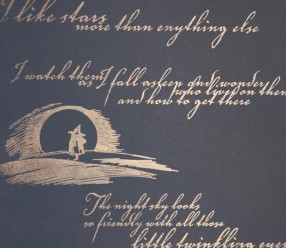 I like stars
more than anything else
I watch them
as I fall asleep and wonder
who lives on them
and how to get there
The night sky looks
so friendly with all those
little twinkling eyes